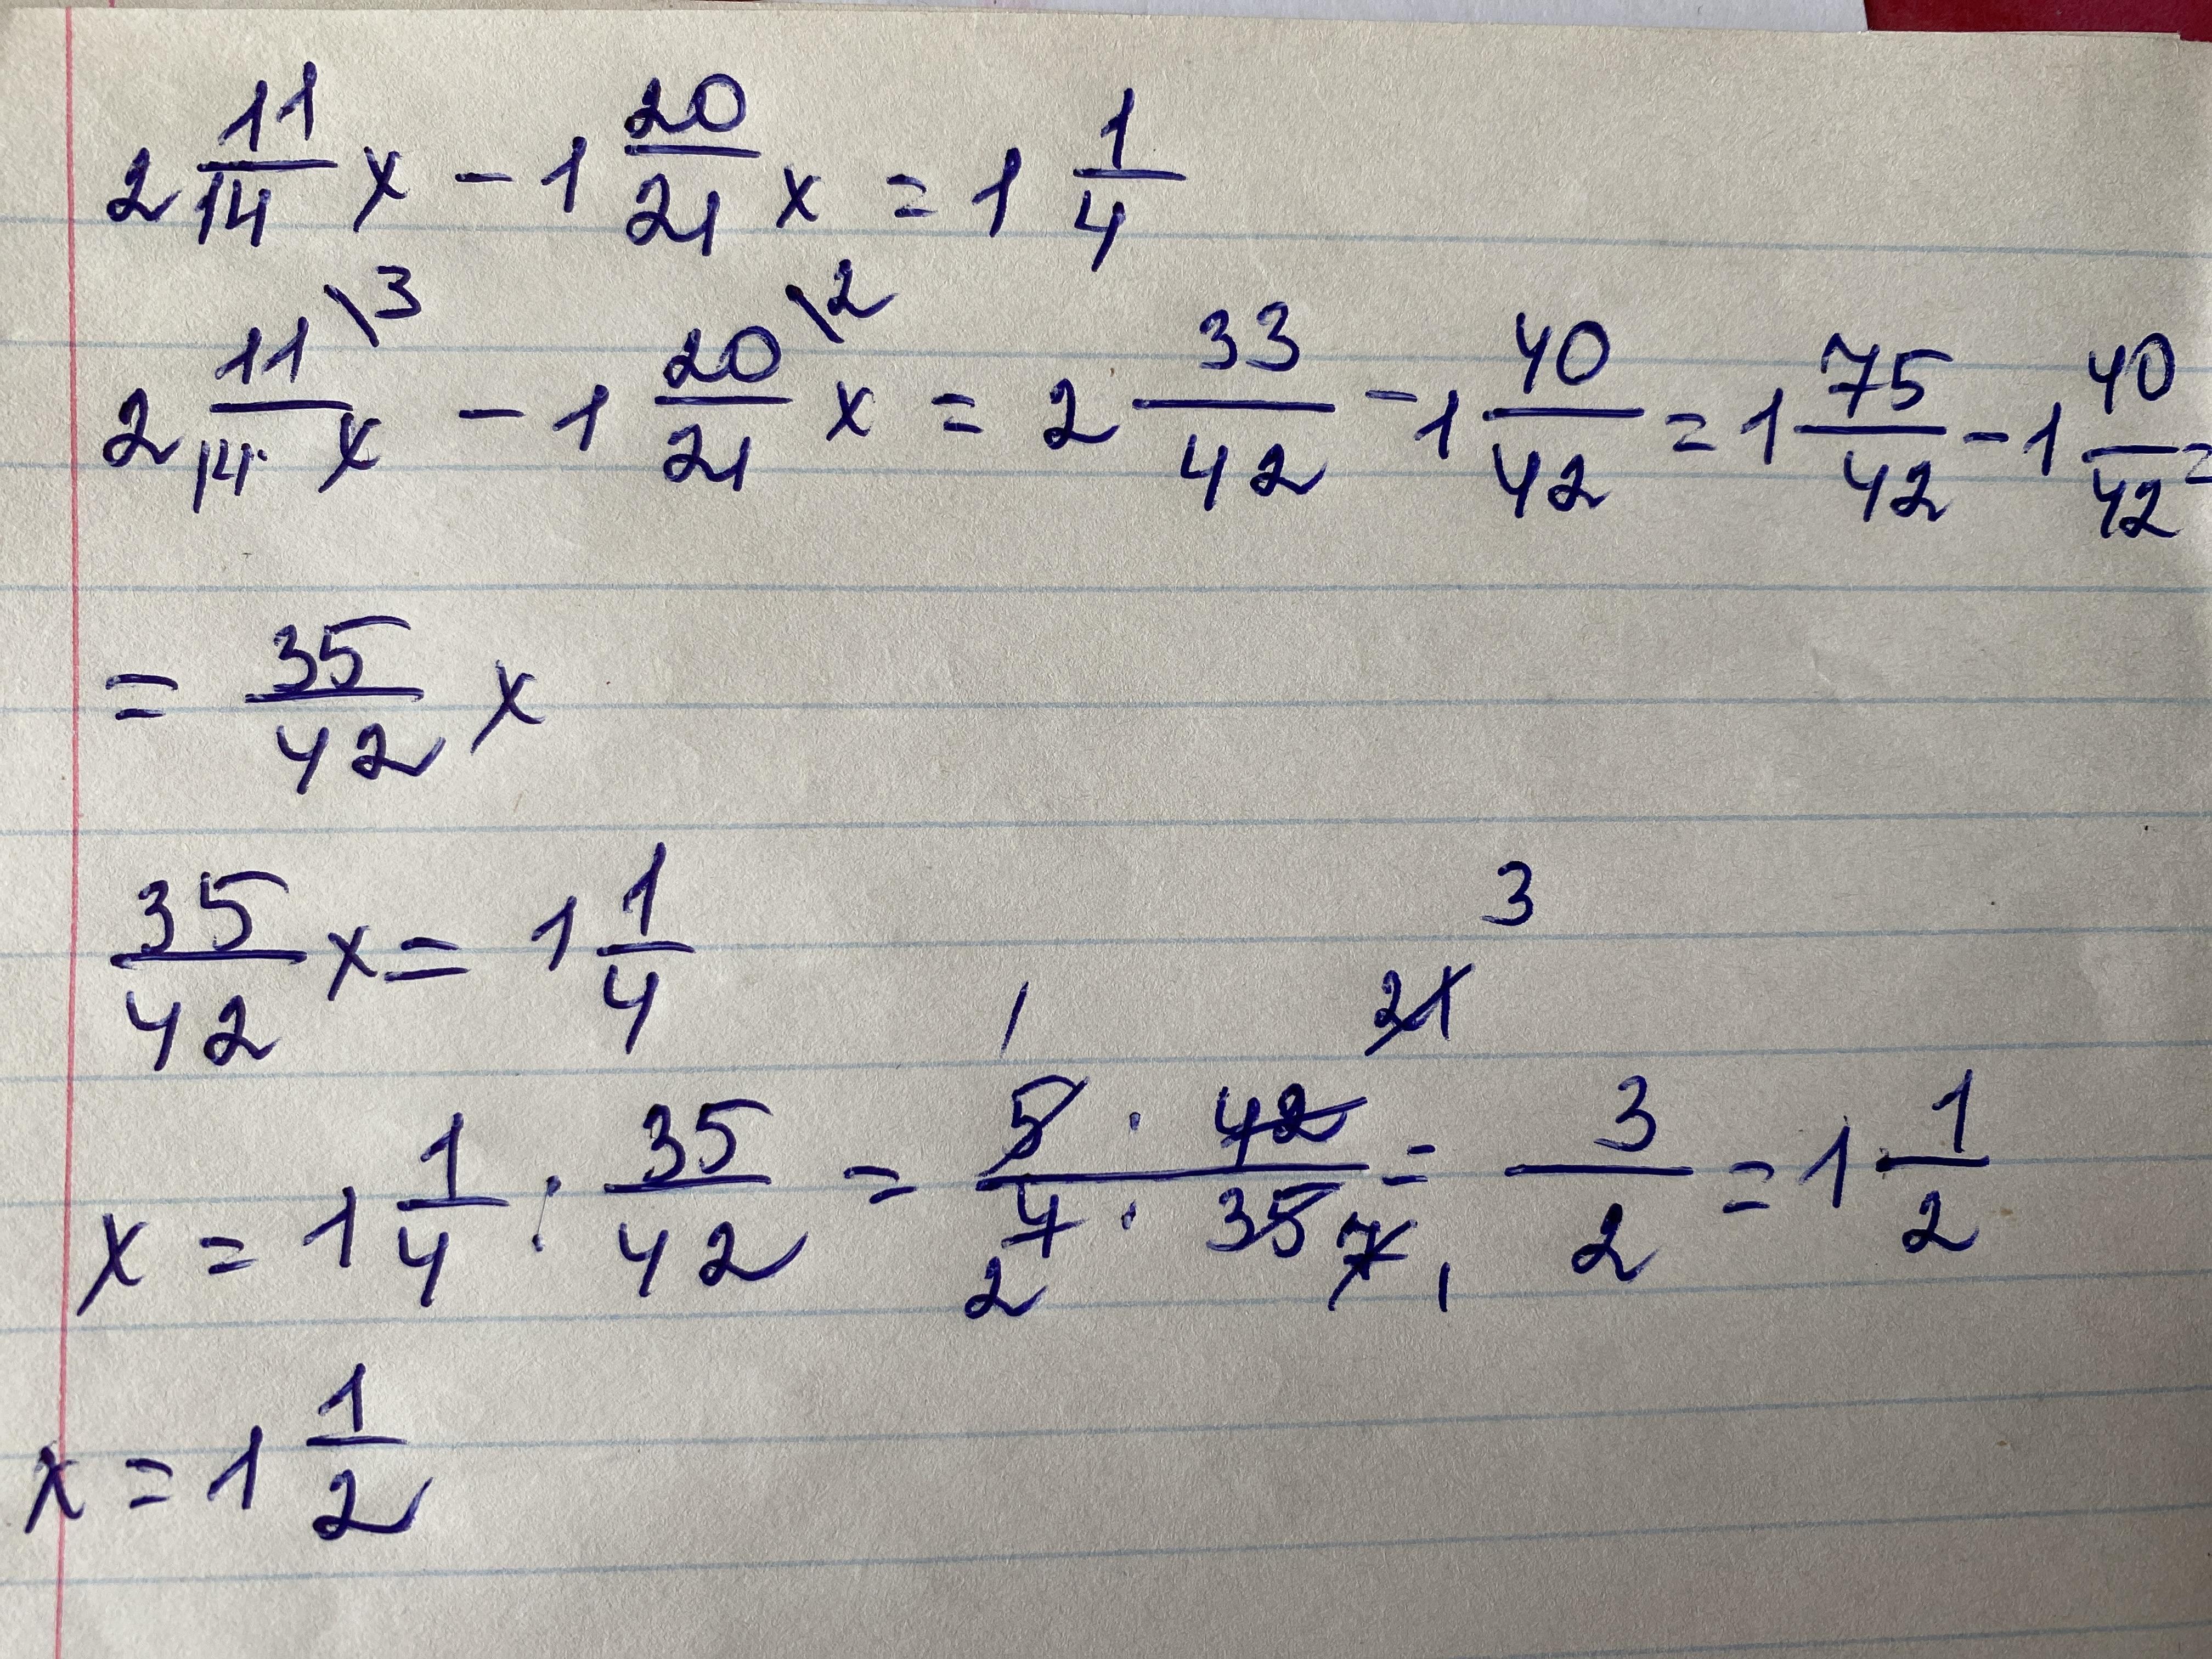 2 11/14 x - 1 20/21 x = 1 1/4
2 11\3/14 x - 1 20\2/21 x = 2 33/42 - 1 40/42 = 1 75/42 - 1 40/42 =
= 35/42 x
35/42 x = 1 1/4
x = 1 1/4 : 35/42 = 1 5 · 42 21 3 / 2 4 · 35 7 1 = 3/2 = 1 1/2
x = 1 1/2